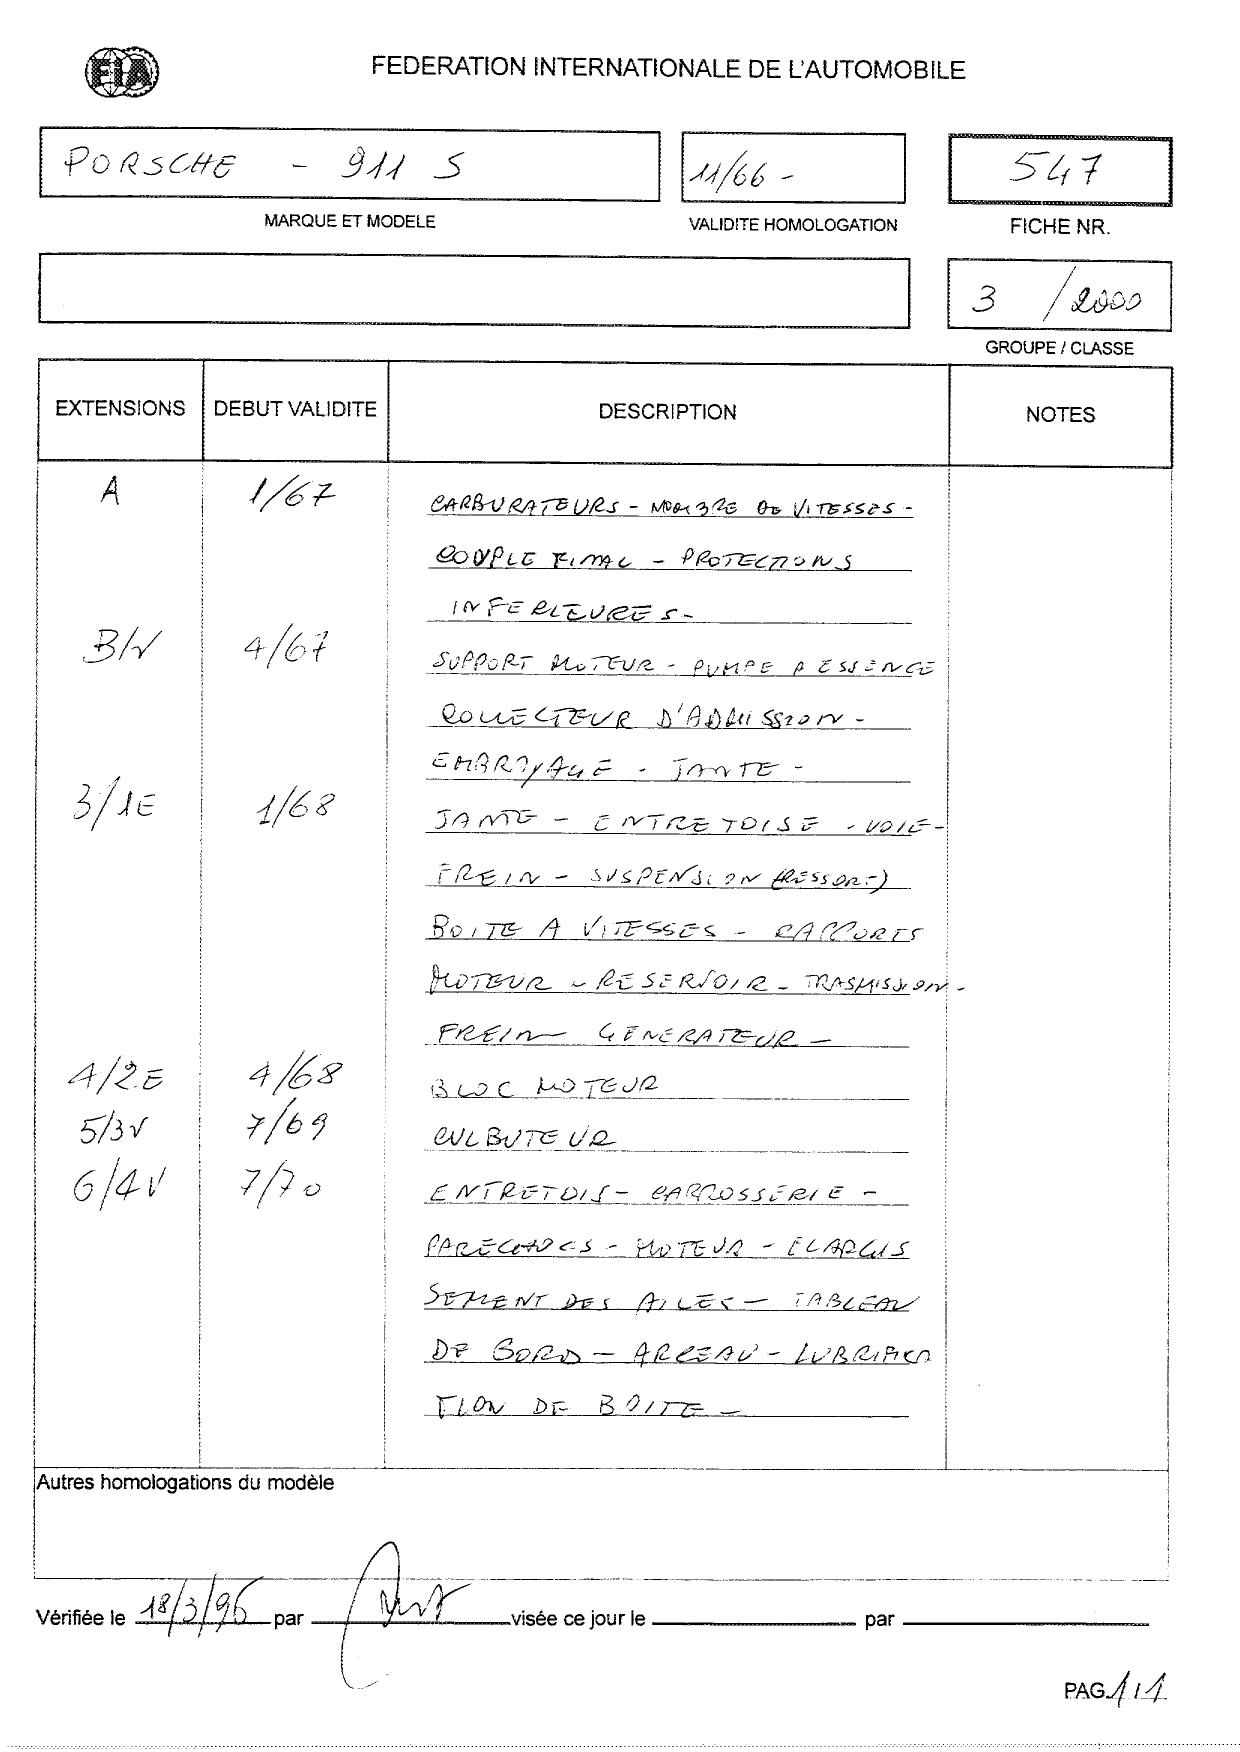 FIA
FEDERATION INTERNATIONALE DE L'AUTOMOBILE
PORSCHE - 911 S
11/66 -
547
MARQUE ET MODELE
VALIDITE HOMOLOGATION
FICHE NR.
3 / 2000
GROUPE / CLASSE
EXTENSIONS DEBUT VALIDITE DESCRIPTION NOTES
A 1/67 CARBURATEURS - NOMBRE DE VITESSES -
COUPLE FINAL - PROTECTIONS
INFERIEURES -
3/1V 4/67 SUPPORT MOTEUR - PUMPE A ESSENCE
COLLECTEUR D'ADMISSION -
EMBRAYAGE - JANTE -
3/1E 1/68 JANTE - ENTRETOISE - VOIE -
FREIN - SUSPENSION (RESSORT)
BOITE A VITESSES - RAPPORTS
MOTEUR - RESERVOIR - TRASMISSION -
FREIN - GENERATEUR -
4/2E 4/68 BLOC MOTEUR
5/3V 7/69 CULBUTEUR
6/4V 7/70 ENTRETOIS - CARROSSERIE -
PARECHOCS - MOTEUR - ELARGIS
SEMENT DES AILES - TABLEAU
DE BORD - ARCEAU - LUBRIFICA
TION DE BOITE -
Autres homologations du modèle
Vérifiée le 18/3/96 par visée ce jour le par
PAG. 1/1